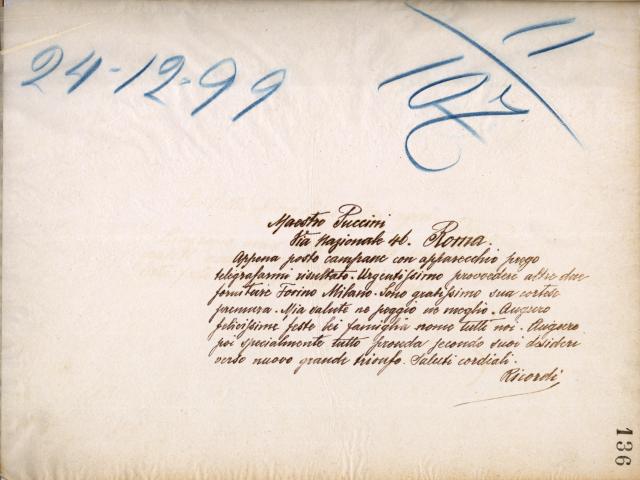 24-12-99
Maestro Puccini
Via Nazionale 46. Roma.
Appena posto campane con apparecchio prego
telegrafarmi risultato. Urgentissimo provvedere altre due
forniture Torino Milano. Sono gratissimo sua cortese
premura. Mia salute no peggio no meglio. Auguro
felicissime feste lei famiglia nome tutti noi. Auguro
poi specialmente tutto proceda secondo suoi desideri
verso nuovo grande trionfo. Saluti cordiali.
Ricordi
136